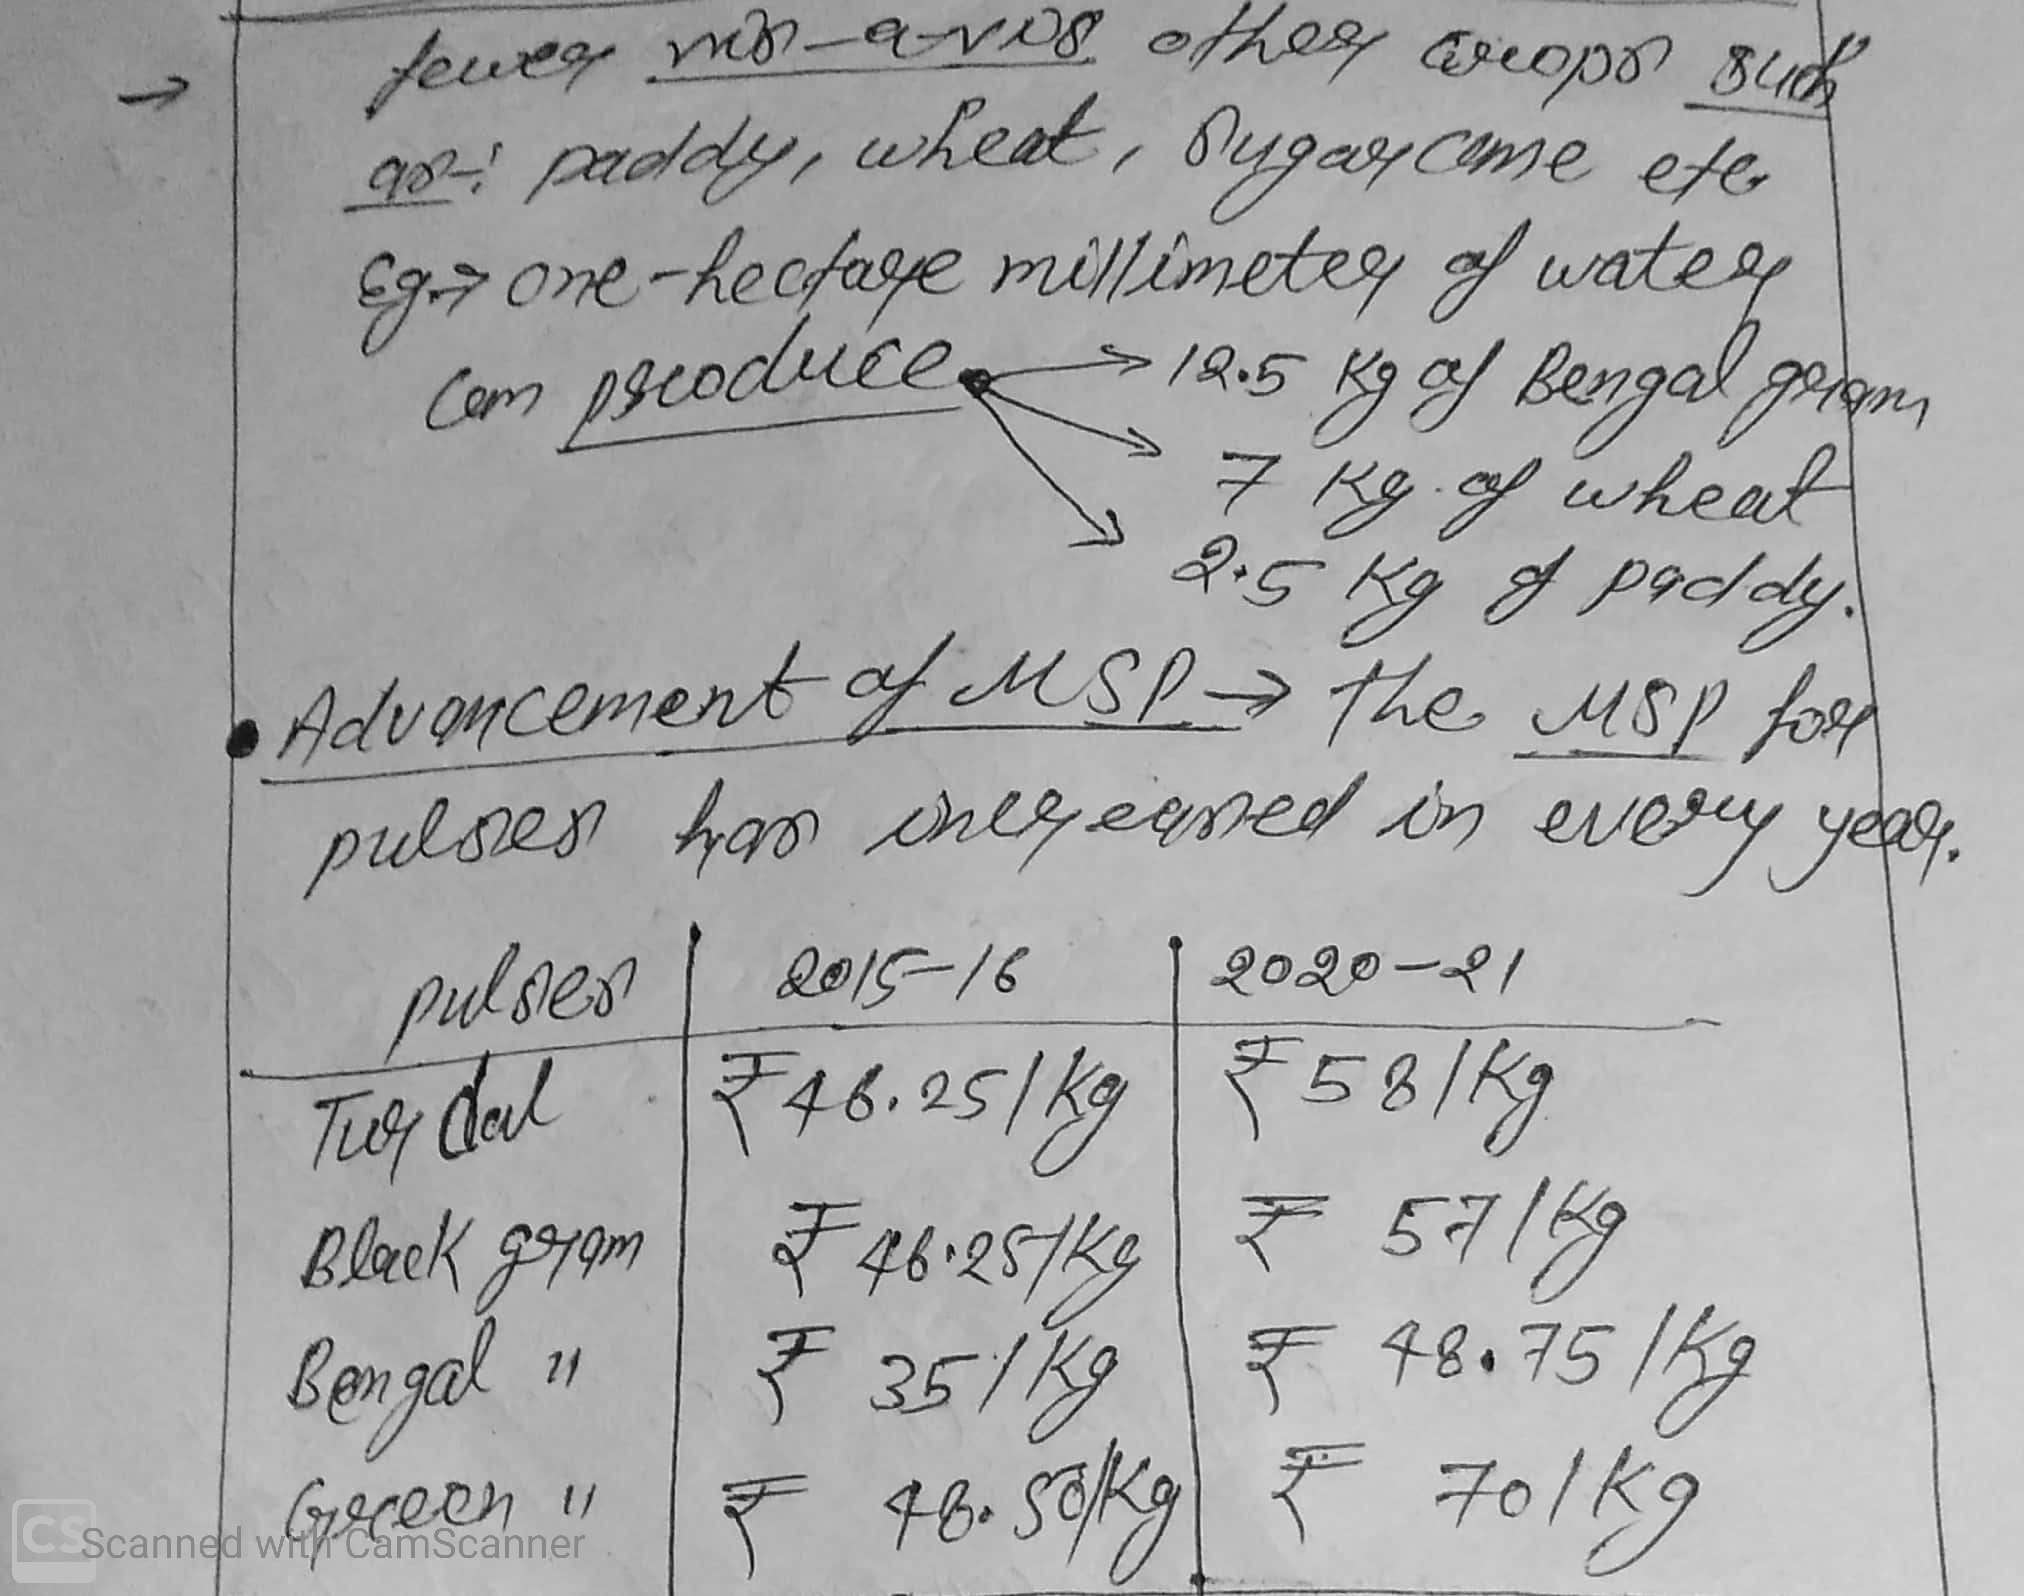 → fewer vis-a-vis other crops such
as-: paddy, wheat, Sugarcane etc.
Eg.→ one-hectare millimeter of water
can produce → 12.5 Kg of Bengal gram
→ 7 Kg. of wheat
→ 2.5 Kg of paddy.
• Advancement of MSP → the MSP for
pulses has increased in every year.
pulses 2015-16 2020-21
Tur dal ₹46.25/Kg ₹58/Kg
Black gram ₹46.25/Kg ₹ 57/Kg
Bengal " ₹ 35/Kg ₹ 48.75/Kg
Green " ₹ 48.50/Kg ₹ 70/Kg
CS Scanned with CamScanner